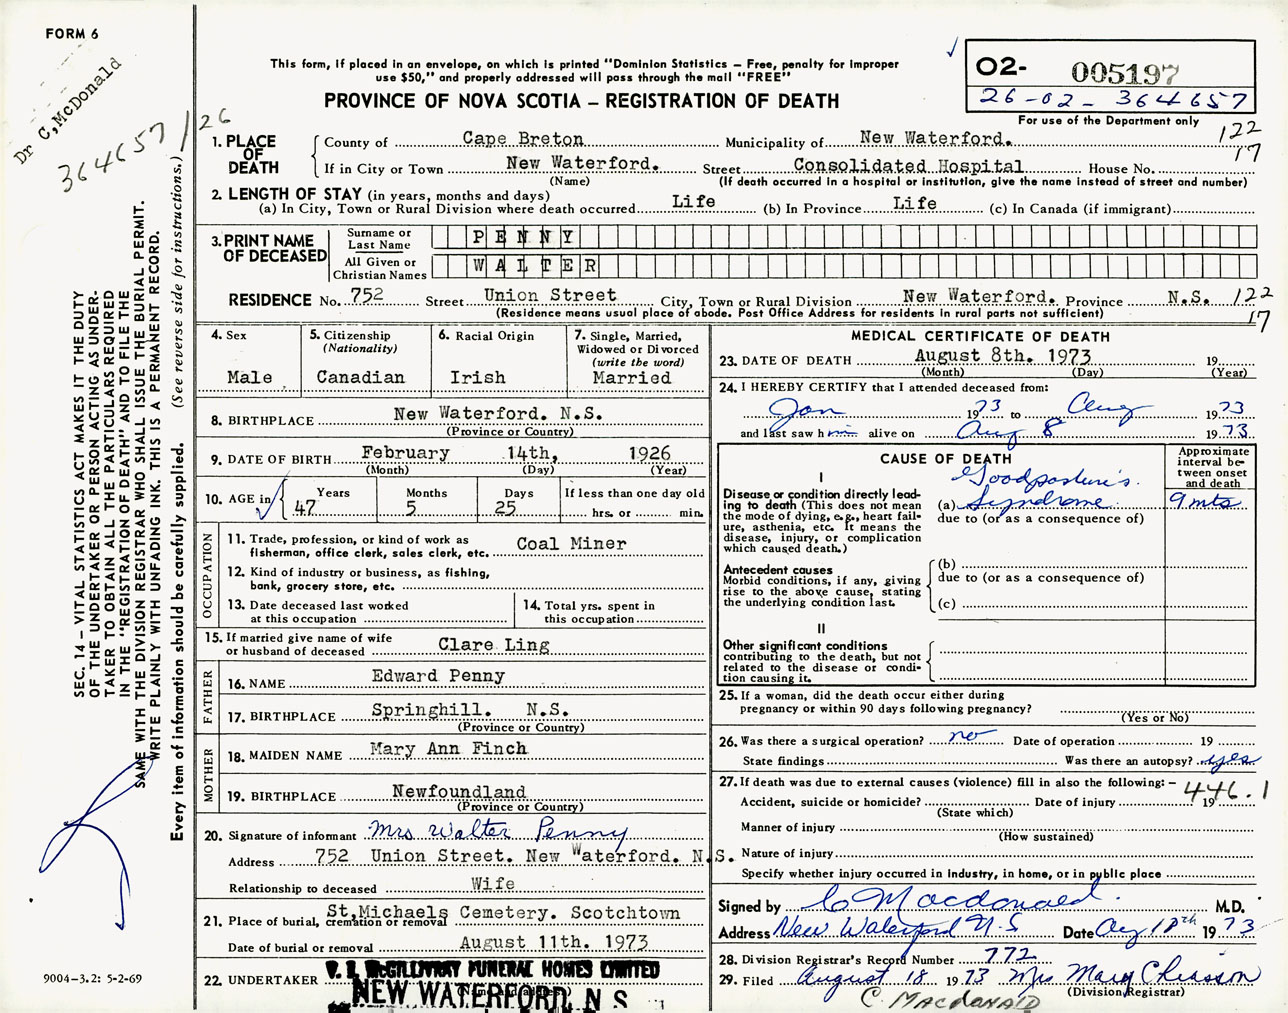 FORM 6
Dr C, McDonald
364657 / 26
This form, if placed in an envelope, on which is printed "Dominion Statistics – Free, penalty for improper
use $50," and properly addressed will pass through the mail "FREE"
PROVINCE OF NOVA SCOTIA – REGISTRATION OF DEATH
02- 005197
26-02-364657
For use of the Department only
122
17
1. PLACE OF DEATH
County of Cape Breton Municipality of New Waterford.
If in City or Town New Waterford. Street Consolidated Hospital House No.
(Name) (If death occurred in a hospital or institution, give the name instead of street and number)
2. LENGTH OF STAY (in years, months and days)
(a) In City, Town or Rural Division where death occurred Life (b) In Province Life (c) In Canada (if immigrant)
3. PRINT NAME OF DECEASED
Surname or Last Name PENNY
All Given or Christian Names WALTER
RESIDENCE No. 752 Street Union Street City, Town or Rural Division New Waterford. Province N.S. 122
(Residence means usual place of abode. Post Office Address for residents in rural parts not sufficient) 17
4. Sex
Male
5. Citizenship
(Nationality)
Canadian
6. Racial Origin
Irish
7. Single, Married,
Widowed or Divorced
(write the word)
Married
8. BIRTHPLACE New Waterford. N.S.
(Province or Country)
9. DATE OF BIRTH February 14th, 1926
(Month) (Day) (Year)
10. AGE in Years Months Days If less than one day old
47 5 25 hrs. or min.
OCCUPATION
11. Trade, profession, or kind of work as
fisherman, office clerk, sales clerk, etc. Coal Miner
12. Kind of industry or business, as fishing,
bank, grocery store, etc.
13. Date deceased last worked
at this occupation
14. Total yrs. spent in
this occupation
15. If married give name of wife
or husband of deceased Clare Ling
FATHER
16. NAME Edward Penny
17. BIRTHPLACE Springhill. N.S.
(Province or Country)
MOTHER
18. MAIDEN NAME Mary Ann Finch
19. BIRTHPLACE Newfoundland
(Province or Country)
20. Signature of informant Mrs Walter Penny
Address 752 Union Street. New Waterford. N.S.
Relationship to deceased Wife
21. Place of burial, cremation or removal St, Michaels Cemetery. Scotchtown
Date of burial or removal August 11th. 1973
22. UNDERTAKER V. J. McGILLIVRAY FUNERAL HOMES LIMITED
NEW WATERFORD, N S
MEDICAL CERTIFICATE OF DEATH
23. DATE OF DEATH August 8th. 1973 19
(Month) (Day) (Year)
24. I HEREBY CERTIFY that I attended deceased from:
Jan 1973 to Aug 1973
and last saw him alive on Aug 8 1973
CAUSE OF DEATH
Approximate
interval be-
tween onset
and death
I
Disease or condition directly lead-
ing to death (This does not mean
the mode of dying, e.g., heart fail-
ure, asthenia, etc. It means the
disease, injury, or complication
which caused death.)
Goodpasture's
(a) Syndrome 9 mts
due to (or as a consequence of)
Antecedent causes
Morbid conditions, if any, giving
rise to the above cause, stating
the underlying condition last.
(b)
due to (or as a consequence of)
(c)
II
Other significant conditions
contributing to the death, but not
related to the disease or condi-
tion causing it.
25. If a woman, did the death occur either during
pregnancy or within 90 days following pregnancy?
(Yes or No)
26. Was there a surgical operation? no Date of operation 19
State findings Was there an autopsy? yes
27. If death was due to external causes (violence) fill in also the following: –
446.1
Accident, suicide or homicide? Date of injury 19
(State which)
Manner of injury
(How sustained)
Nature of injury
Specify whether injury occurred in industry, in home, or in public place
Signed by C Macdonald M.D.
Address New Waterford N.S Date Aug 18th 1973
28. Division Registrar's Record Number 772
29. Filed August 18 1973 Mrs Mary Chiasson
(Division Registrar)
C MACDONALD
SEC. 14 – VITAL STATISTICS ACT MAKES IT THE DUTY
OF THE UNDERTAKER OR PERSON ACTING AS UNDER-
TAKER TO OBTAIN ALL THE PARTICULARS REQUIRED
IN THE "REGISTRATION OF DEATH" AND TO FILE THE
SAME WITH THE DIVISION REGISTRAR WHO SHALL ISSUE THE BURIAL PERMIT.
WRITE PLAINLY WITH UNFADING INK. THIS IS A PERMANENT RECORD.
Every item of information should be carefully supplied. (See reverse side for instructions.)
9004–3.2: 5-2-69